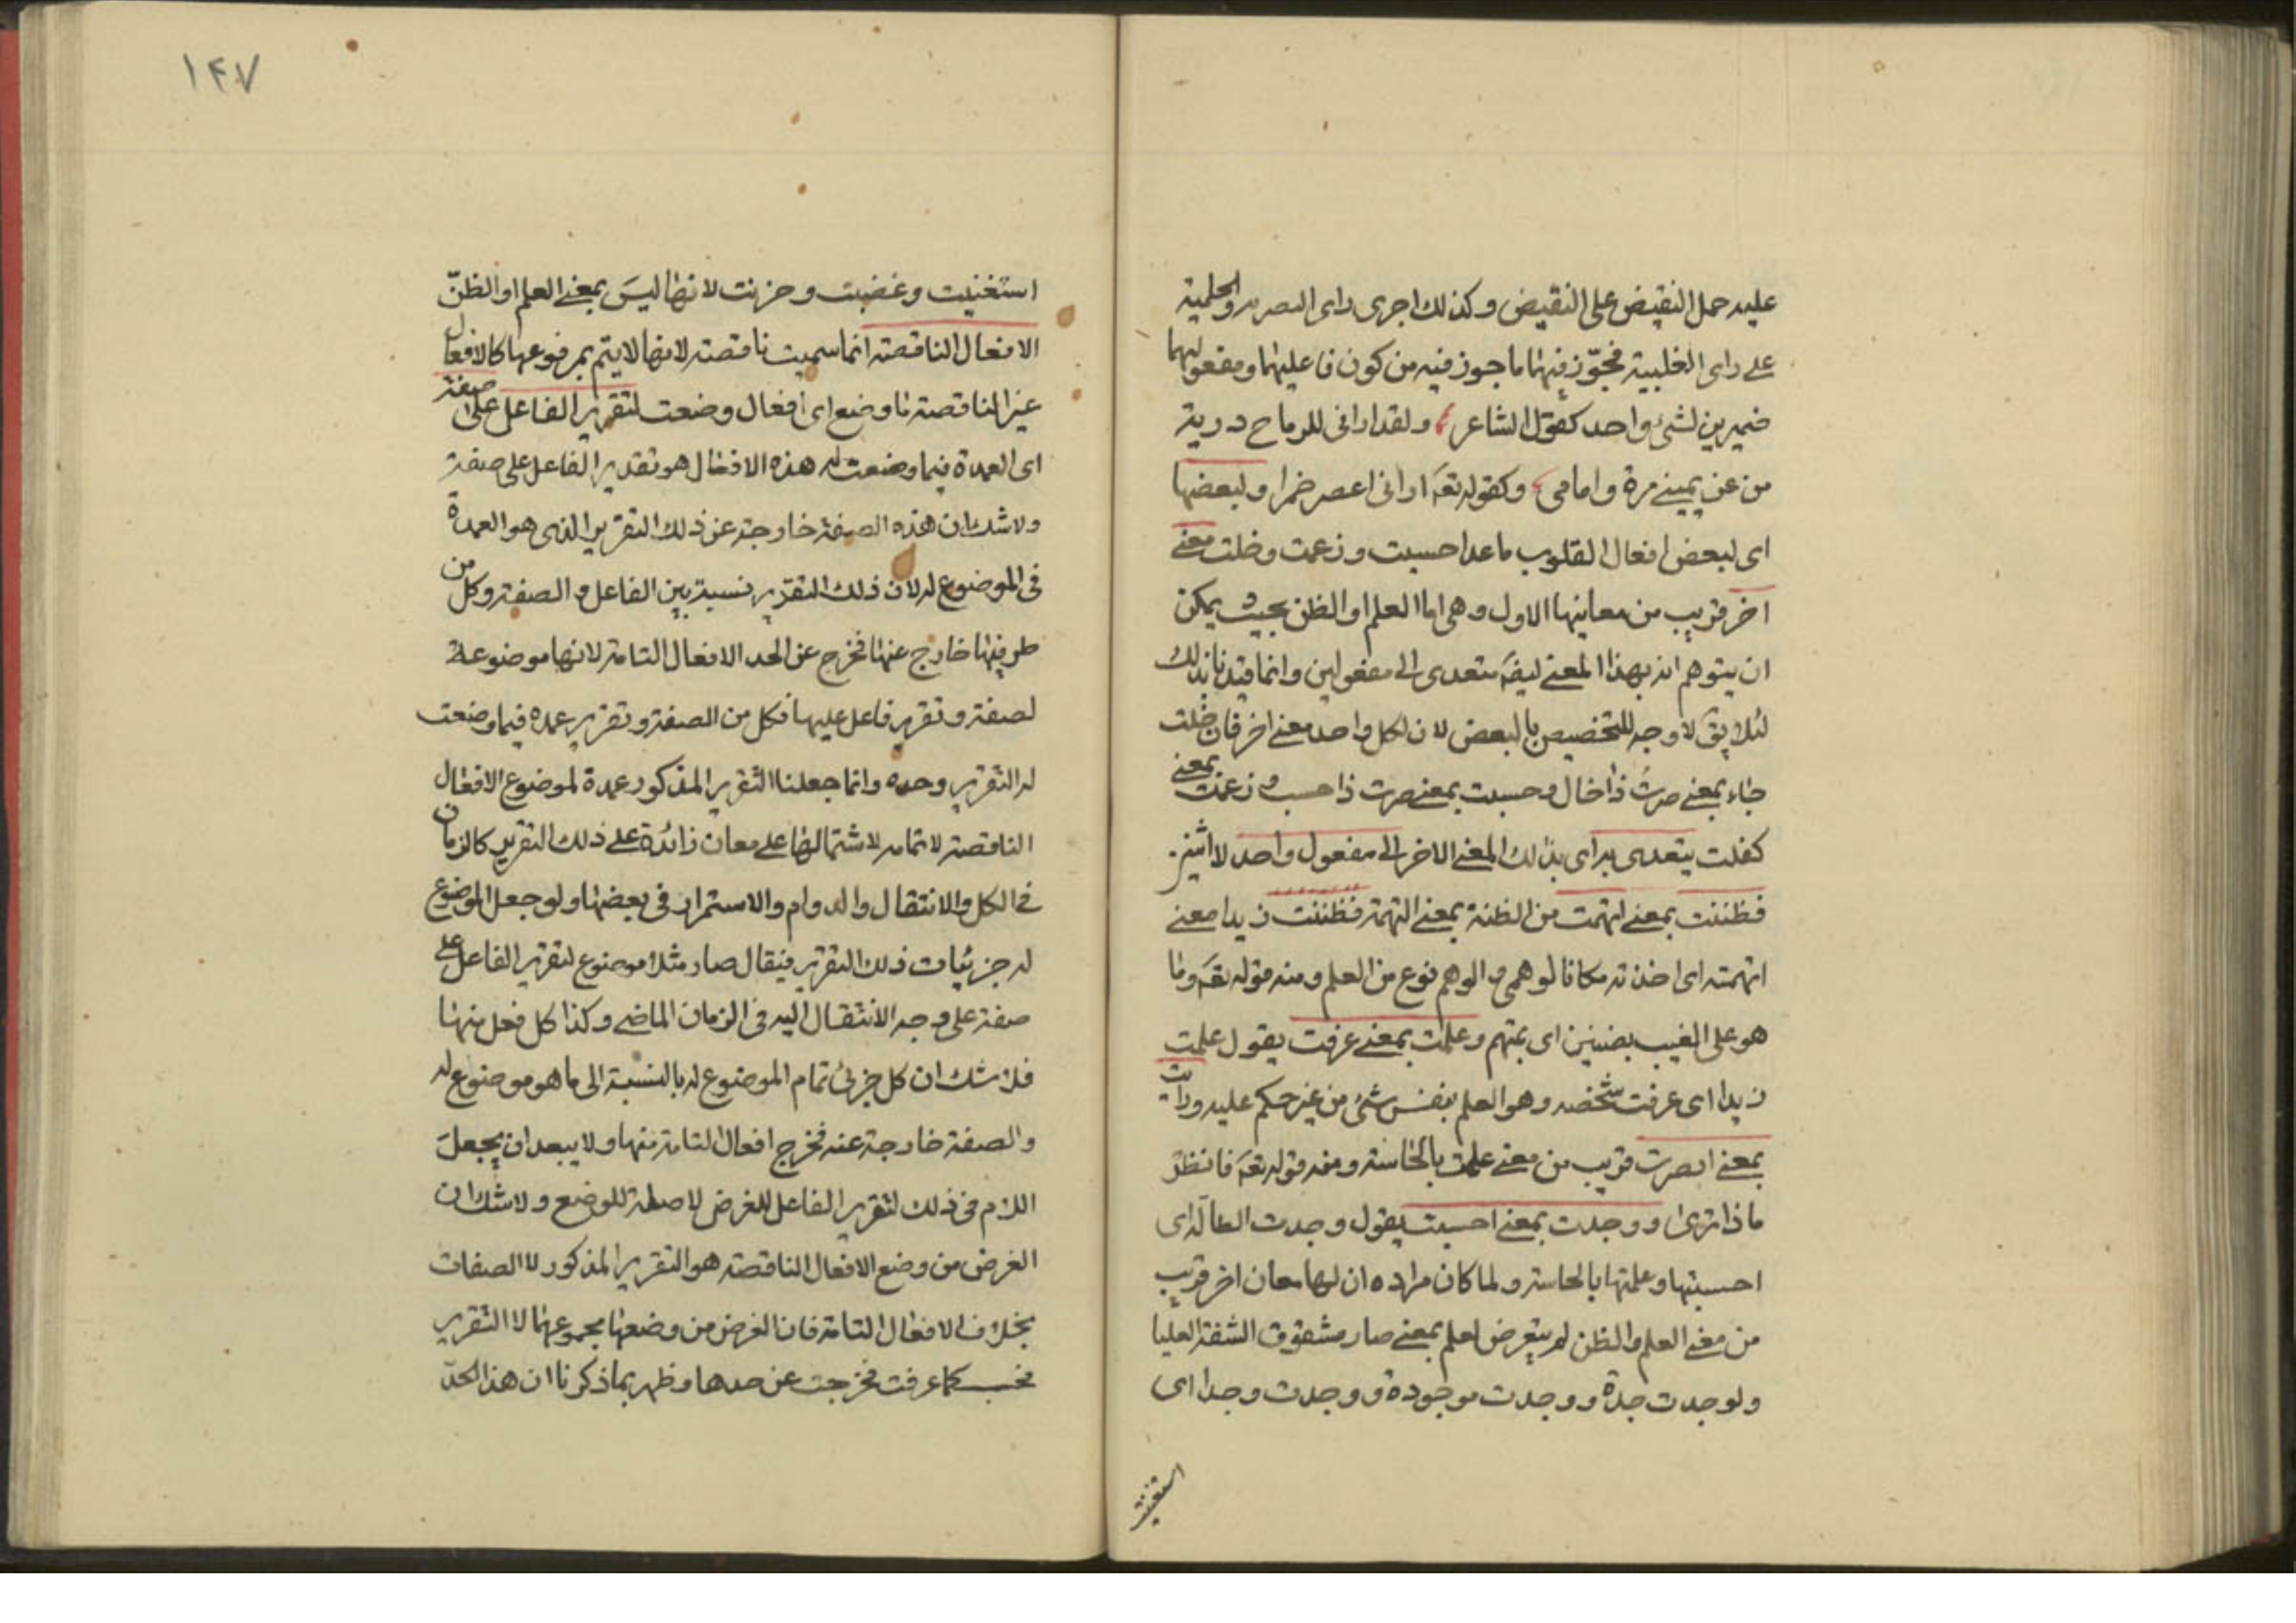 عليه حمل النقيض على النقيض وكذلك اجرى راى البصريه والحلمية
على راى القلبية فجوّز فيهما ما جوز فيه من كون فاعليهما ومفعوليهما
ضميرين لشئ واحد كقول الشاعر ولقد ارانى للرماح درية
من عن يمينى مرة وامامى وكقوله تعه ارانى اعصر خمرا ولبعضها
اى لبعض افعال القلوب ما عدا حسبت وزعمت وخلت معنى
اخر قريب من معانيها الاول وهى اما العلم او الظن بحيث يمكن
ان يتوهم انه بهذا المعنى ايضَ متعدى الى مفعولين وانما قيدنا بذلك
لئلا يقَ لا وجه للتخصيص بالبعض لان لكل واحد معنى اخر فان خلت
جاء بمعنى صرت ذا خال وحسبت بمعنى صرت ذا حسب وزعمت بمعنى
كفلت يتعدى به اى بذلك المعنى الاخر الى مفعول واحد لا اثنين
فظننت بمعنى اتهمت من الظنة بمعنى التهمة فظننت زيدا معنى
اتهمته اى اخذته مكانا لوهمى والوهم نوع من العلم ومنه قوله تعه وما
هو على الغيب بضنين اى بمتهم وعلمت بمعنى عرفت يقول علمت
زيدا اى عرفت شخصه وهو العلم بنفس شئ من غير حكم عليه ورايت
بمعنى ابصرت قريب من معنى علمت بالحاسة ومنه قوله تعه فانظر
ماذا ترى ووجدت بمعنى احسبت يقول وجدت الضالة اى
احسبتها وعلمتها بالحاسة ولما كان مراده ان لها معان اخر قريب
من معنى العلم والظن لم يتعرض لعلم بمعنى صار مشقوق الشفة العليا
ولوجدت جدة ووجدت موجودة ووجدت وجدا اى
استغنيت
١٤٧
استغنيت وغضبت وحزنت لانها ليسَ بمعنى العلم او الظنّ
الافعال الناقصة انما سميت ناقصة لانها لا يتم بمرفوعها كالافعال
غير الناقصة ما وضع اى افعال وضعت لتقرير الفاعل على صفة
اى العمدة فيما وضعت له هذه الافعال هو تقدير الفاعل على صفة
ولا شك ان هذه الصفة خارجة عن ذلك التقرير الذى هو العمدة
فى الموضوع له لان ذلك التقرير نسبة بين الفاعل والصفة وكل من
طرفيها خارج عنها فخرج عن الحد الافعال التامة لانها موضوعة
لصفة وتقرير فاعل عليها فكل من الصفة وتقرير عمده فيما وضعت
له التقرير وحده وانما جعلنا التقرير المذكور عمدة لموضوع الافعال
الناقصة لا تمامه لاشتمالها على معان زائدة على ذلك التقرير كالزمان
فى الكل والانتقال والدوام والاستمرار فى بعضها ولو جعل الموضوع
له جزئيات ذلك التقرير فيقال صار مثلا موضوع لتقرير الفاعل على
صفة على وجه الانتقال اليه فى الزمان الماضى وكذا كل فعل منها
فلا شك ان كل جزئ تمام الموضوع له بالنسبة الى ما هو موضوع له
والصفة خارجة عنه فخرج افعال التامة منها ولا يبعد ان يجعلَ
اللام فى ذلك لتقرير الفاعل للغرض لا صلة للوضع ولا شك ان
الغرض من وضع الافعال الناقصة هو التقرير المذكور لا الصفات
بخلاف الافعال التامة فان الغرض من وضعها مجموعهما لا التقرير
فحسب كما عرفت فخرجت عن حدها وظهر بما ذكرنا ان هذا الحدّ